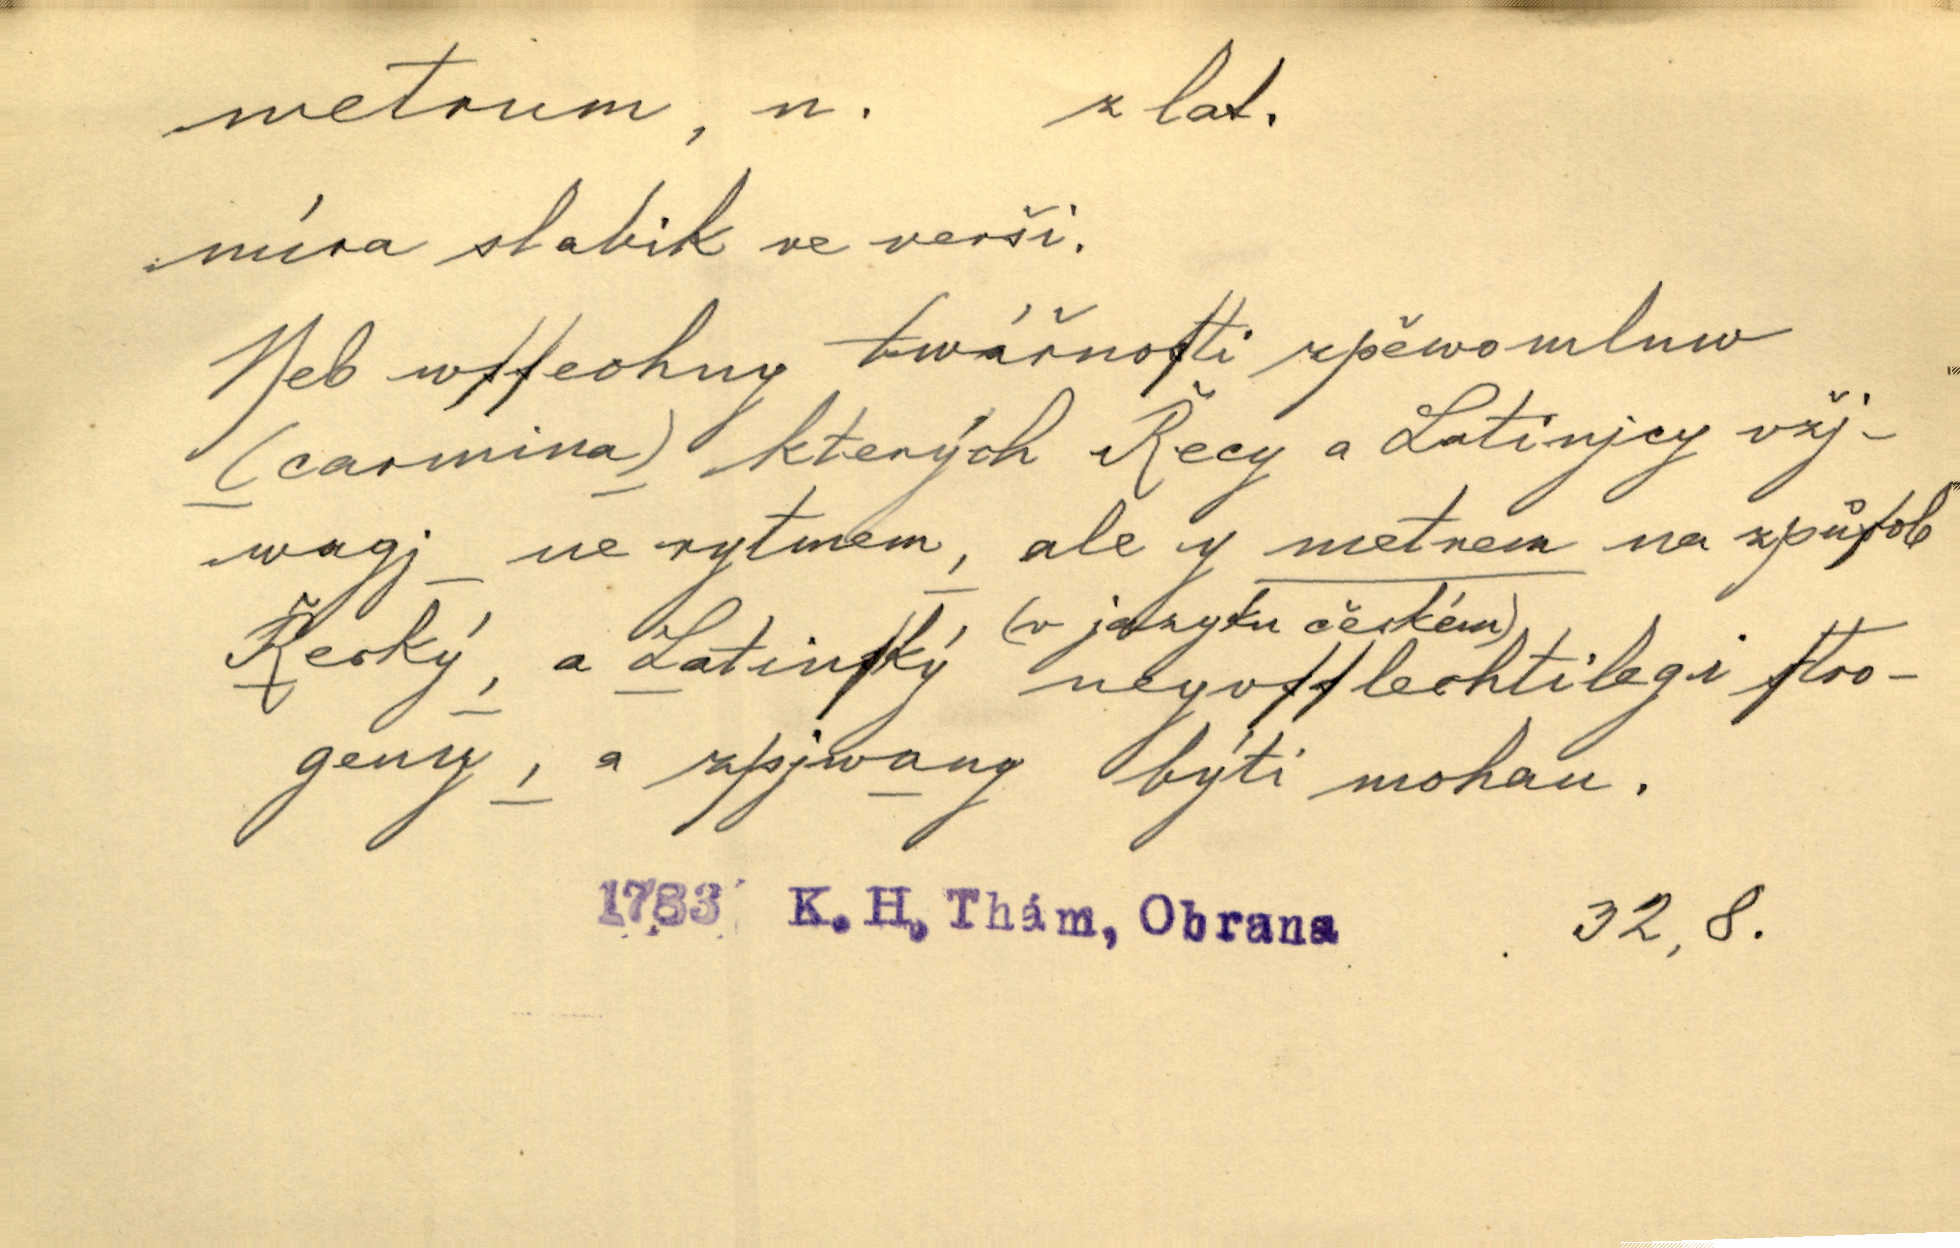 metrum, n. z lat.
míra slabik ve verši.
Neb wſſechny twářnoſti zpěwomluw
(carmina) kterých Řecy a Latinjcy vžj-
wagj ne rytmem, ale y metrem na způſob
Řecký, a Latinſký (v jazyku českém) neyvſſlechtilegi ſtro-
geny, a zpjwany býti mohau.
1783 K. H. Thám, Obrana 32, 8.